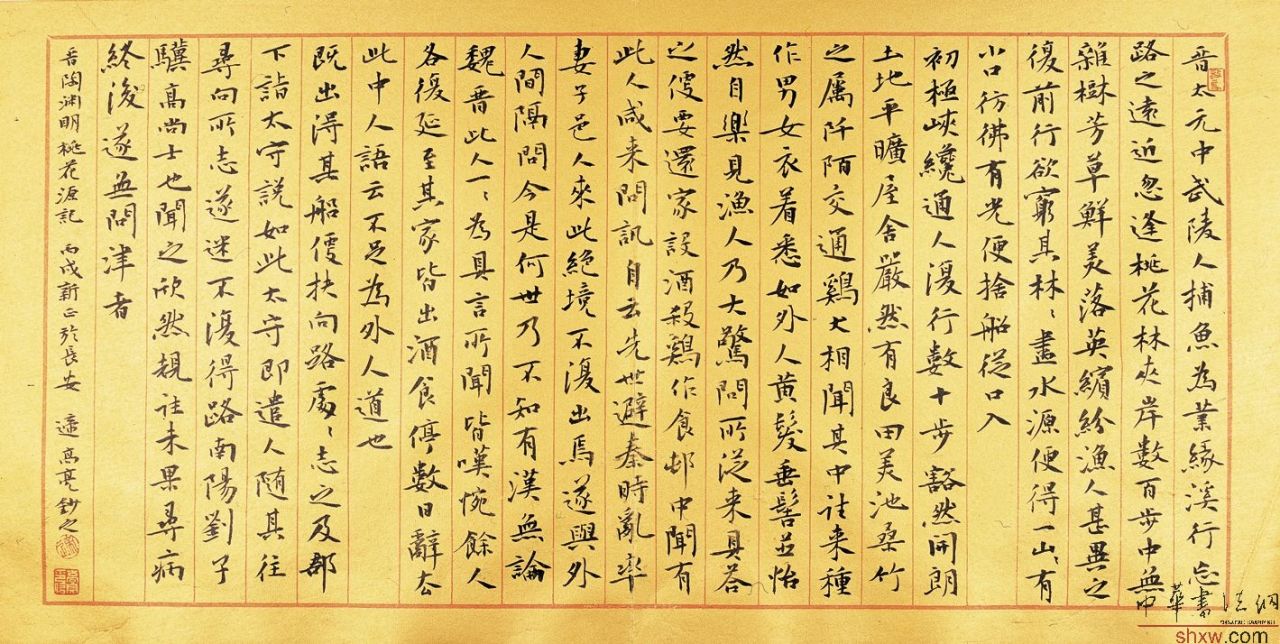 晋太元中武陵人捕魚為業緣溪行忘
路之遠近忽逢桃花林夾岸數百步中無
雜樹芳草鮮美落英繽紛漁人甚異之
復前行欲窮其林〻盡水源便得一山〻有
小口彷彿有光便捨船從口入
初極峽纔通人復行數十步豁然開朗
土地平曠屋舍嚴然有良田美池桑竹
之属阡陌交通鷄犬相聞其中往来種
作男女衣着悉如外人黄髮垂髫並怡
然自樂見漁人乃大驚問所從来具答
之便要還家設酒殺鷄作食邨中聞有
此人咸来問訊自云先世避秦時亂率
妻子邑人來此絶境不復出焉遂與外
人間隔問今是何世乃不知有漢無論
魏晋此人一〻為具言所聞皆嘆惋餘人
各復延至其家皆出酒食停數日辭去
此中人語云不足為外人道也
既出得其船便扶向路處〻志之及郡
下詣太守説如此太守即遣人随其往
尋向所志遂迷不復得路南陽劉子
驥高尚士也聞之欣然規往未果尋病
終後遂無問津者
晋陶渊明桃花源記 丙戌新正於長安 高亮鈔之
中華書法網
shxw.com